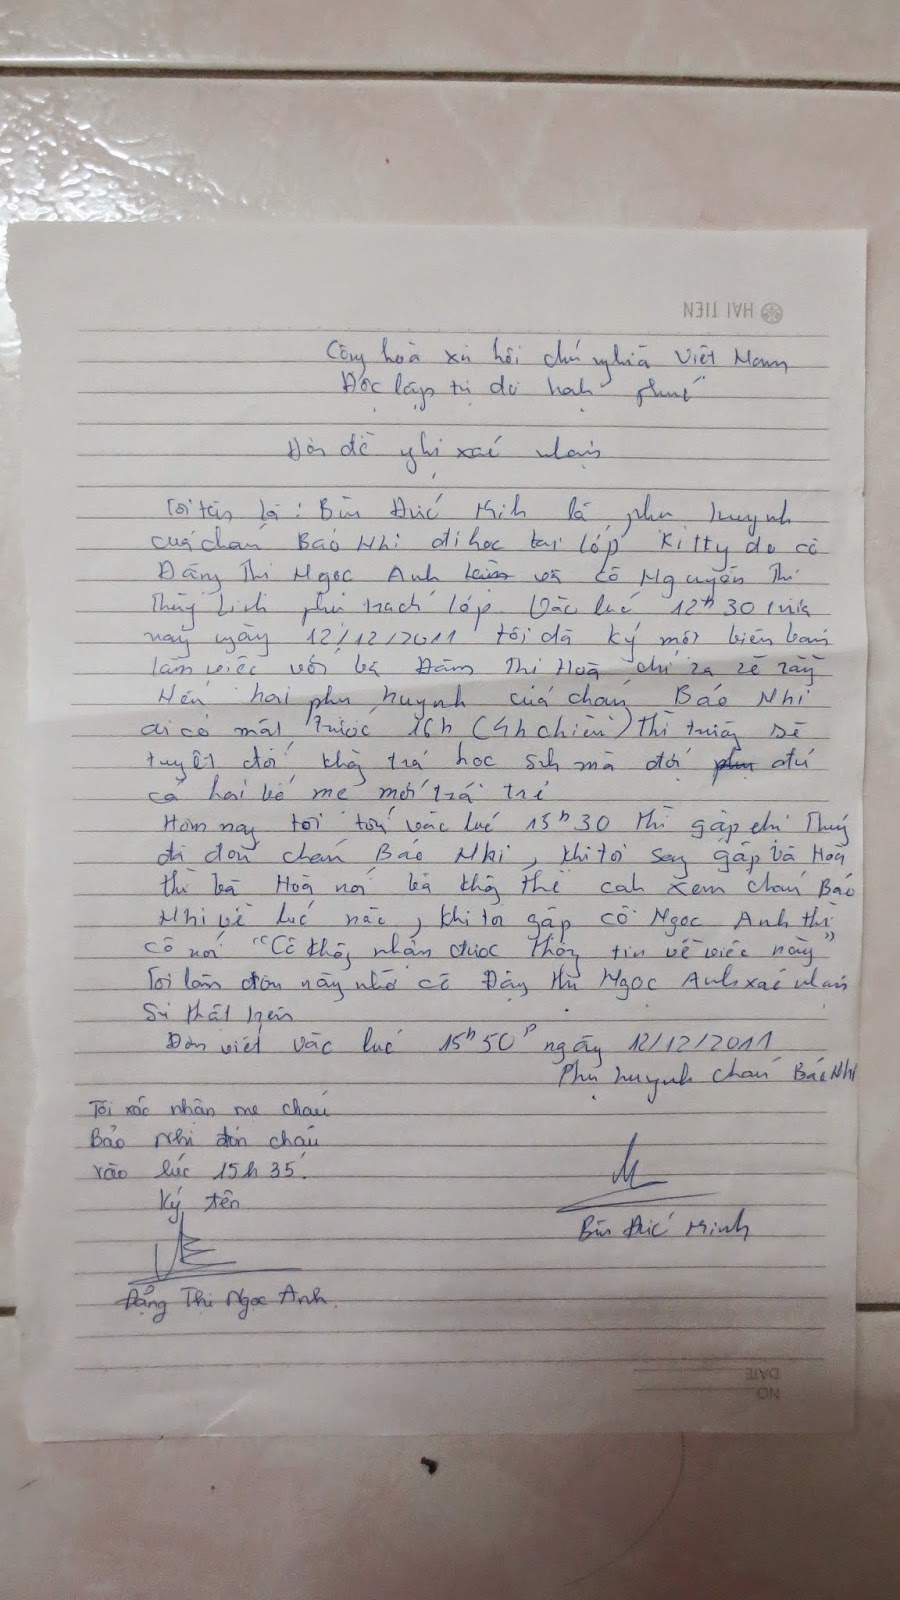 HAI TIEN
Công hoà xã hôi chủ nghĩa Việt Nam
Độc lập tự do hạnh phúc
Đơn đề nghị xác nhận
Tôi tên là : Bùi Đức Minh là phụ huynh
của cháu Bảo Nhi đi học tại lớp Kitty do cô
Đặng Thị Ngọc Anh và cô Nguyễn Thị
Thùy Linh phụ trách lớp. Vào lúc 12h30 trưa
nay ngày 12/12/2011 tôi đã ký một biên bản
làm việc với bà Đàm Thị Hoà chỉ ra rõ rằng
Nếu hai phụ huynh của cháu Bảo Nhi
ai có mặt trước 16h (4h chiều) thì trường sẽ
tuyệt đối không trả học sinh mà đợi đủ
cả hai bố mẹ mới trả trẻ
Hôm nay tôi tới vào lúc 15h30 thì gặp chị Thuý
đã đón cháu Bảo Nhi, khi tôi sang gặp bà Hoà
thì bà Hoà nói bà không thể canh xem cháu Bảo
Nhi về lúc nào, khi tôi gặp cô Ngọc Anh thì
cô nói "Cô không nhận được thông tin về việc này"
Tôi làm đơn này nhờ cô Đặng Thị Ngọc Anh xác nhận
Sự thật trên
Đơn viết vào lúc 15h50p ngày 12/12/2011
Phụ huynh cháu Bảo Nhi
Tôi xác nhận mẹ cháu
Bảo Nhi đón cháu
vào lúc 15h35.
Ký tên
Bùi Đức Minh
Đặng Thị Ngọc Anh.
DATE
NO